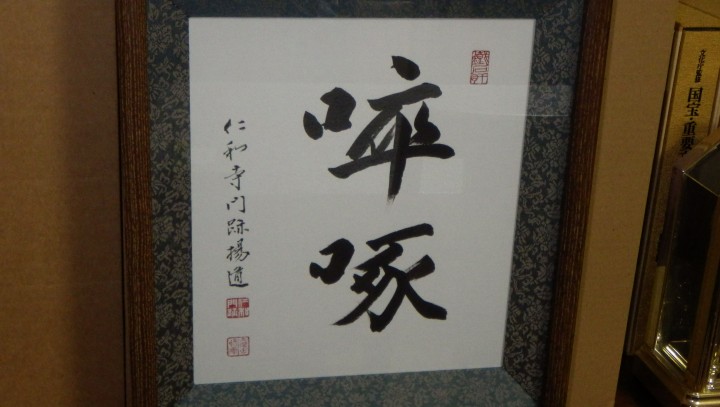 啐啄
仁和寺門跡揚道
国宝・重要